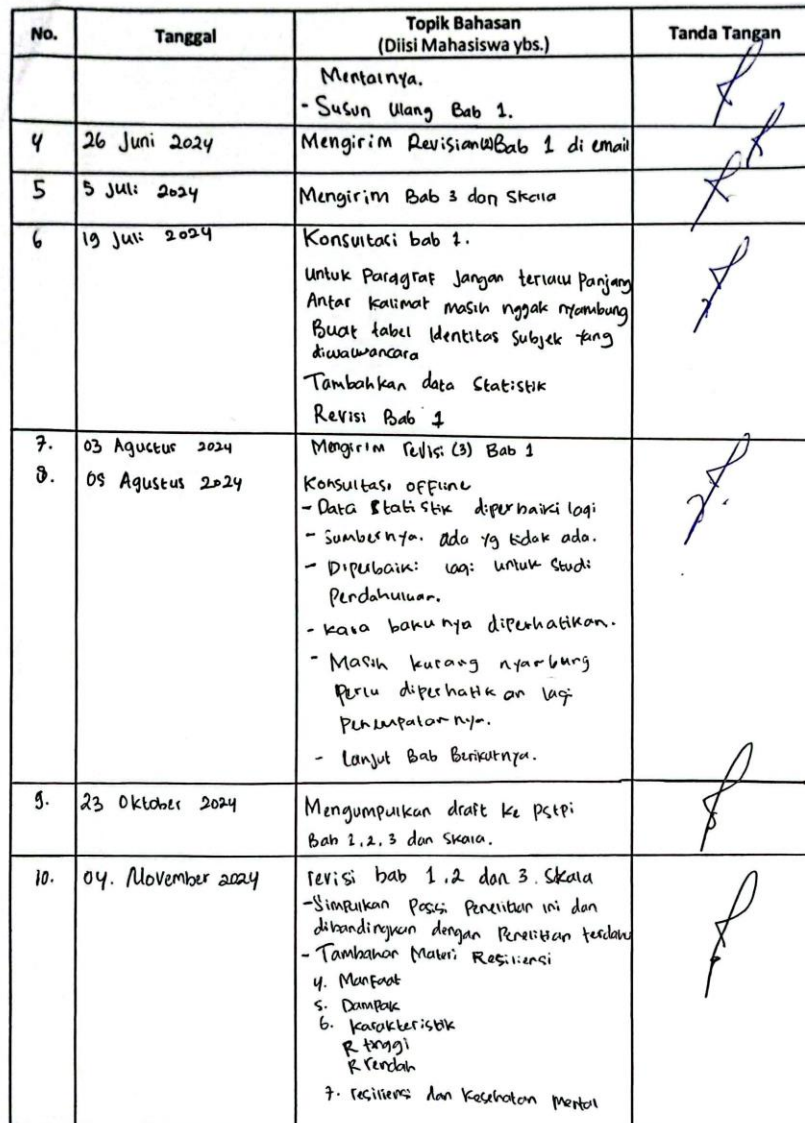 No. Tanggal Topik Bahasan Tanda Tangan
(Diisi Mahasiswa ybs.)
Mentalnya.
- Susun Ulang Bab 1.
4 26 Juni 2024 Mengirim Revisian(2)Bab 1 di email
5 5 Juli 2024 Mengirim Bab 3 dan Skala
6 19 Juli 2024 Konsultasi bab 1.
Untuk Paragraf Jangan terlalu Panjang
Antar Kalimat masih nggak nyambung
Buat tabel Identitas Subjek yang
diwawancara
Tambahkan data Statistik
Revisi Bab 1
7. 03 Agustus 2024 Mengirim revisi (3) Bab 1
8. 05 Agustus 2024 Konsultasi offline
- Data Statistik diperbaiki lagi
- Sumbernya. ada yg tidak ada.
- Diperbaiki lagi untuk Studi
Pendahuluan.
- kata bakunya diperhatikan.
- Masih kurang nyambung
Perlu diperhatikan lagi
Penempatannya.
- Lanjut Bab Berikutnya.
9. 23 Oktober 2024 Mengumpulkan draft ke Pstpi
Bab 1,2,3 dan Skala.
10. 04. November 2024 revisi bab 1,2 dan 3. Skala
- Simpulkan Posisi Penelitian ini dan
dibandingkan dengan Penelitian terdahulu
- Tambahan Materi Resiliensi
4. Manfaat
5. Dampak
6. Karakteristik
R tinggi
R rendah
7. resiliensi dan Kesehatan Mental